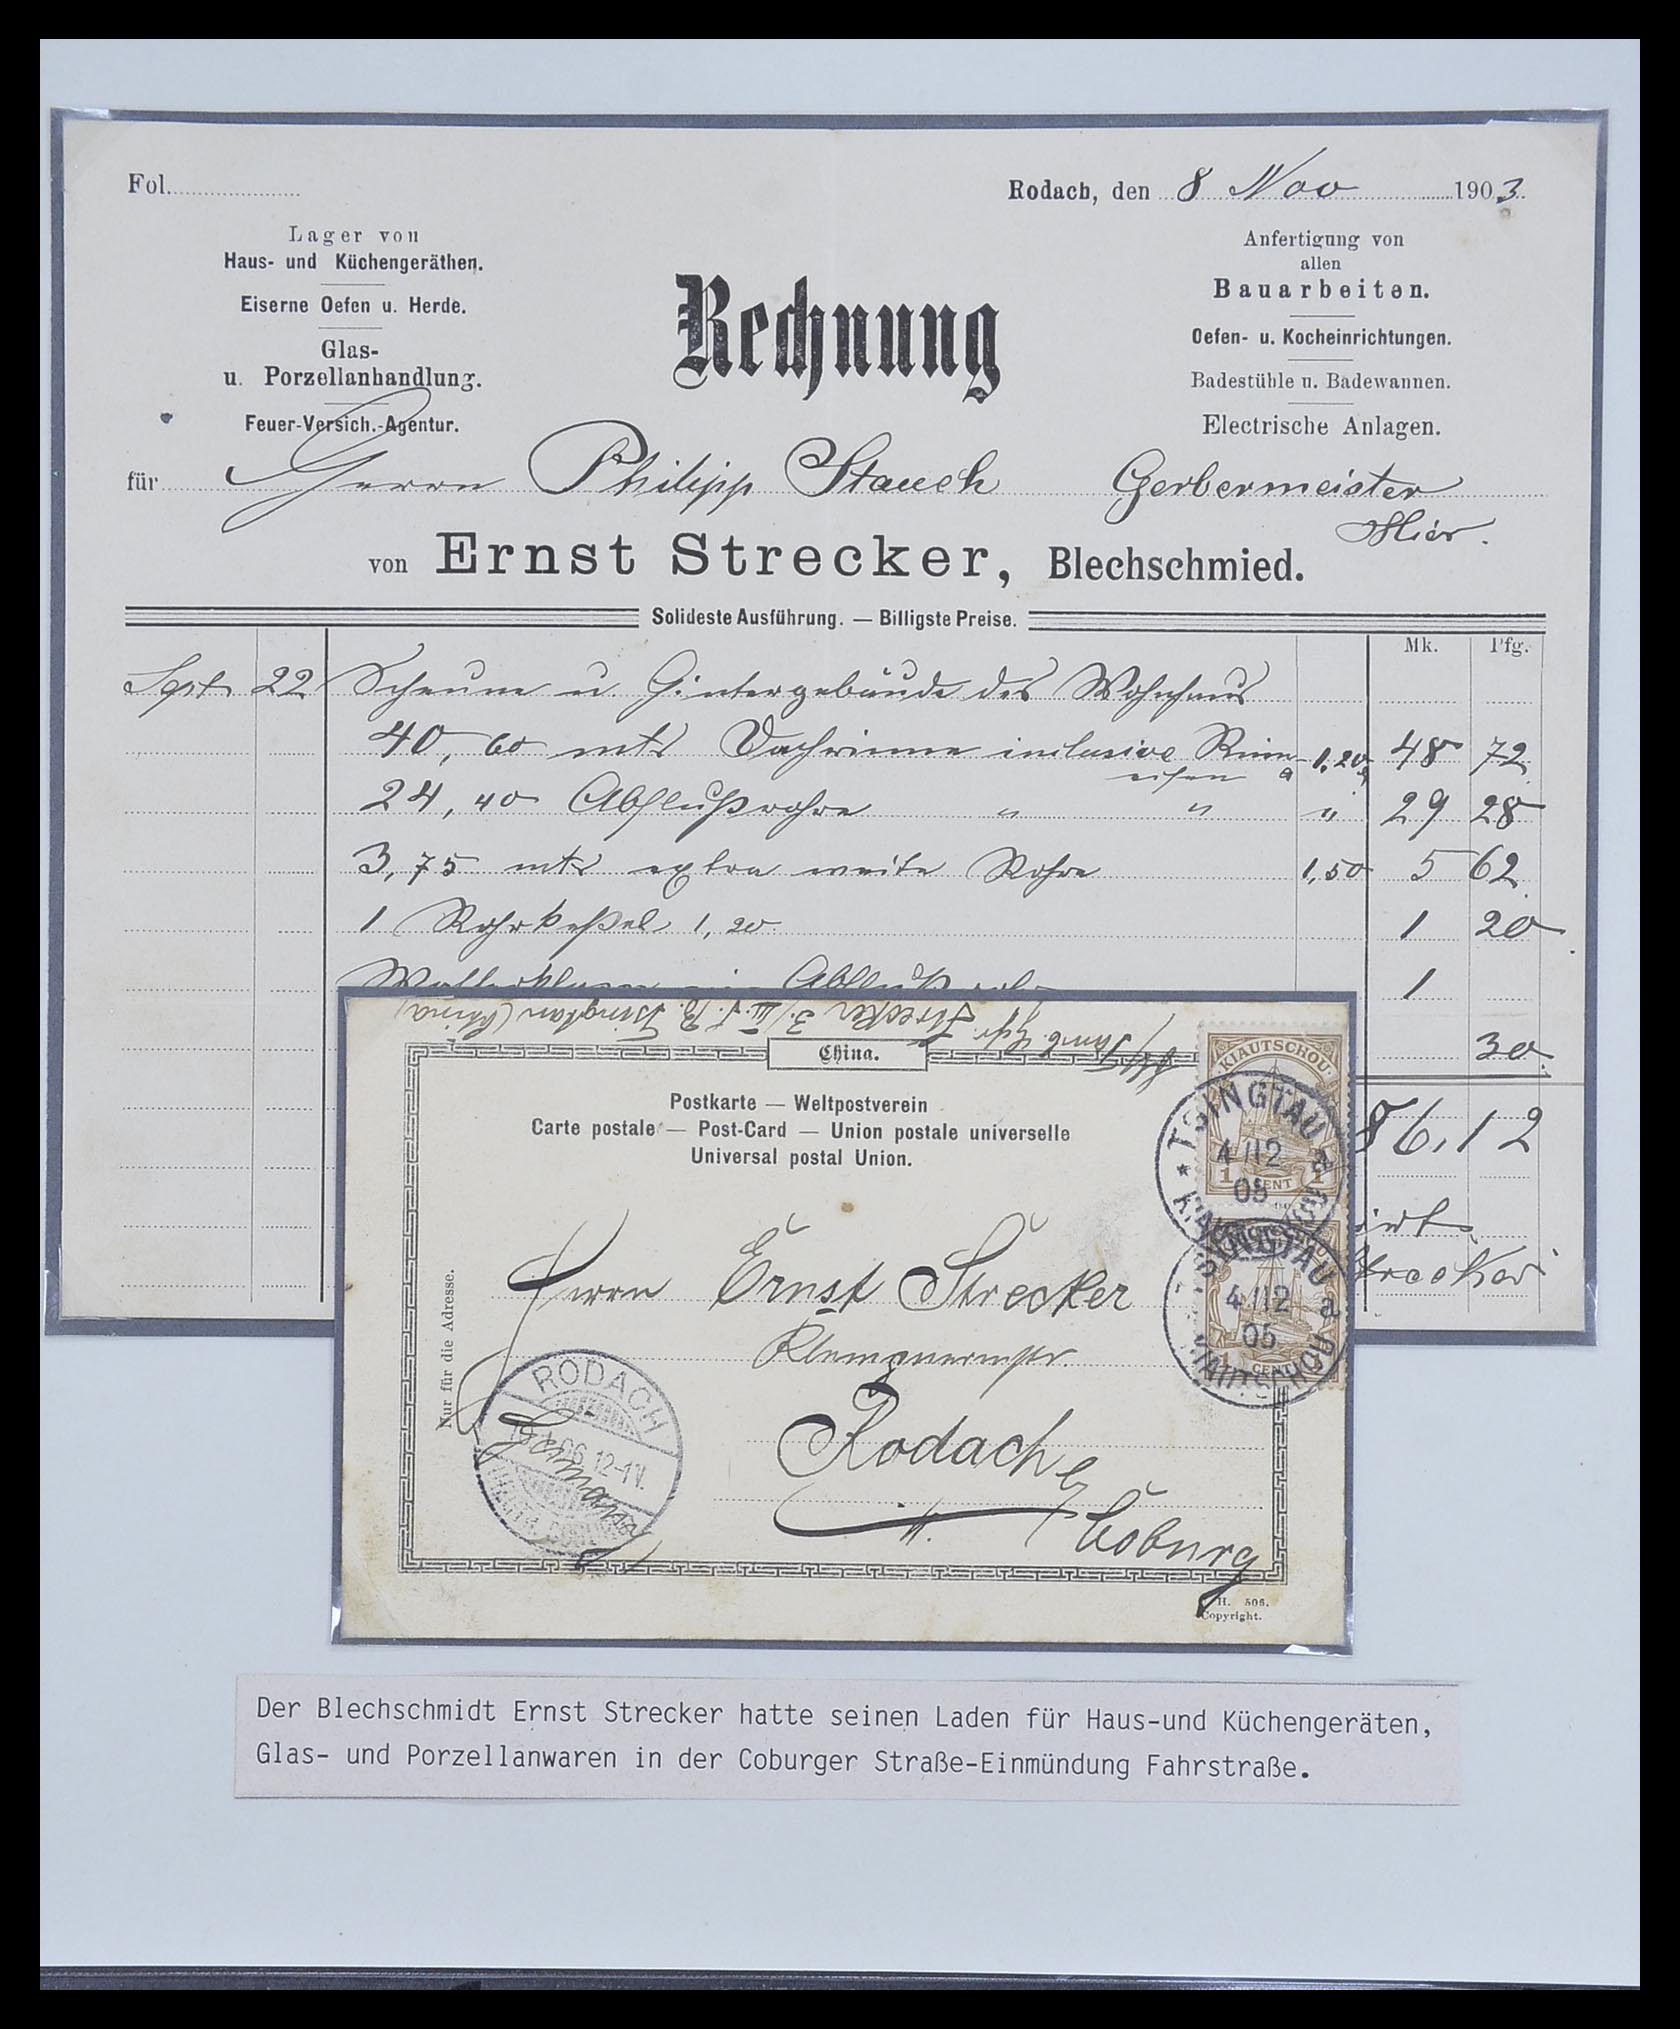 Fol.
Rodach, den 8 Nov 1903
Lager von
Haus- und Küchengeräthen.
Eiserne Oefen u. Herde.
Glas-
u. Porzellanhandlung.
Feuer-Versich.-Agentur.
Rechnung
Anfertigung von
allen
Bauarbeiten.
Oefen- u. Kocheinrichtungen.
Badestühle u. Badewannen.
Electrische Anlagen.
für Herrn Philipp Stauch Gerbermeister
Hier.
von Ernst Strecker, Blechschmied.
Solideste Ausführung. — Billigste Preise.
Mk. Pfg.
Sept 22 Scheune u. Hintergebäude des Wohnhaus
40,60 mtr Dachrinne inclusive Rinn- 1,20 48 72
eisen a
24,40 Abflußrohre " " " 29 28
3,75 mtr extra weite Rohre 1,50 5 62
1 Rohrkeßel 1,20 1 20
1
30
86,12
Strecker
Strecker 3./III. S. B. Tsingtau (China)
China.
Postkarte — Weltpostverein
Carte postale — Post-Card — Union postale universelle
Universal postal Union.
KIAUTSCHOU
1 CENT 1
TSINGTAU a
4/12
05
KIAUTSCHOU
TSINGTAU a
4/12
05
KIAUTSCHOU
1 CENT 1
Nur für die Adresse.
Herrn Ernst Strecker
Klempnermstr.
Rodach b/
Coburg
RODACH
06 12-1N.
Germany
H. 506.
Copyright.
Der Blechschmidt Ernst Strecker hatte seinen Laden für Haus-und Küchengeräten,
Glas- und Porzellanwaren in der Coburger Straße-Einmündung Fahrstraße.